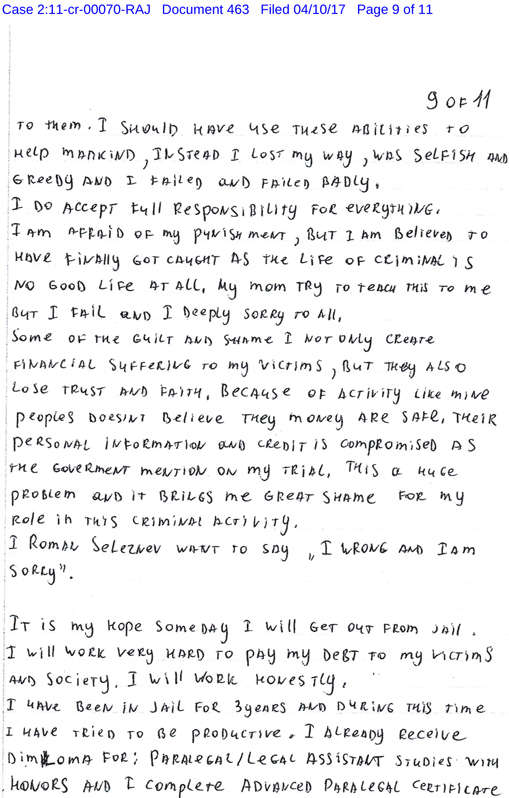 Case 2:11-cr-00070-RAJ Document 463 Filed 04/10/17 Page 9 of 11
9 OF 11
TO them. I SHOULD HAVE USE THESE ABILITIES TO
HELP MANKIND, INSTEAD I LOST MY WAY, WAS SELFISH AND
GREEDY AND I FAILED AND FAILED BADLY.
I DO ACCEPT FULL RESPONSIBILITY FOR EVERYTHING.
I AM AFRAID OF MY PUNISHMENT, BUT I AM Believed TO
HAVE FINALLY GOT CAUGHT AS THE LIFE OF CRIMINAL IS
NO GOOD LIFE AT ALL, MY MOM TRY TO TEACH THIS TO ME
BUT I FAIL AND I DEEPLY SORRY TO All,
Some OF THE GUILT AND SHAME I NOT ONLY CREATE
FINANCIAL SUFFERING TO MY VICTIMS, BUT THEY ALSO
LOSE TRUST AND FAITH, BECAUSE OF ACTIVITY LIKE MINE
PEOPLES DOESINT Believe THEY MONEY ARE SAFE, THEIR
PERSONAL INFORMATION AND CREDIT IS COMPROMISED AS
THE GOVERMENT MENTION ON MY TRIAL, THIS a HUGE
PROBLEM AND IT BRINGS ME GREAT SHAME FOR MY
ROLE IN THIS CRIMINAL ACTIVITY.
I ROMAN SELEZNEV WANT TO SAY „I WRONG AND I AM
SORRY".
IT is my HOPE SOMEDAY I will GET OUT FROM JAIL.
I will WORK VERY HARD TO PAY MY DEBT TO MY VICTIMS
AND SOCIETY. I WILL WORK HONESTLY.
I HAVE BEEN IN JAIL FOR 3 YEARS AND DURING THIS TIME
I HAVE TRIED TO BE PRODUCTIVE. I ALREADY RECEIVE
DIMLOMA FOR; PARALEGAL/LEGAL ASSISTANT STUDIES WITH
HONORS AND I COMPLETE ADVANCED PARALEGAL CERTIFICATE